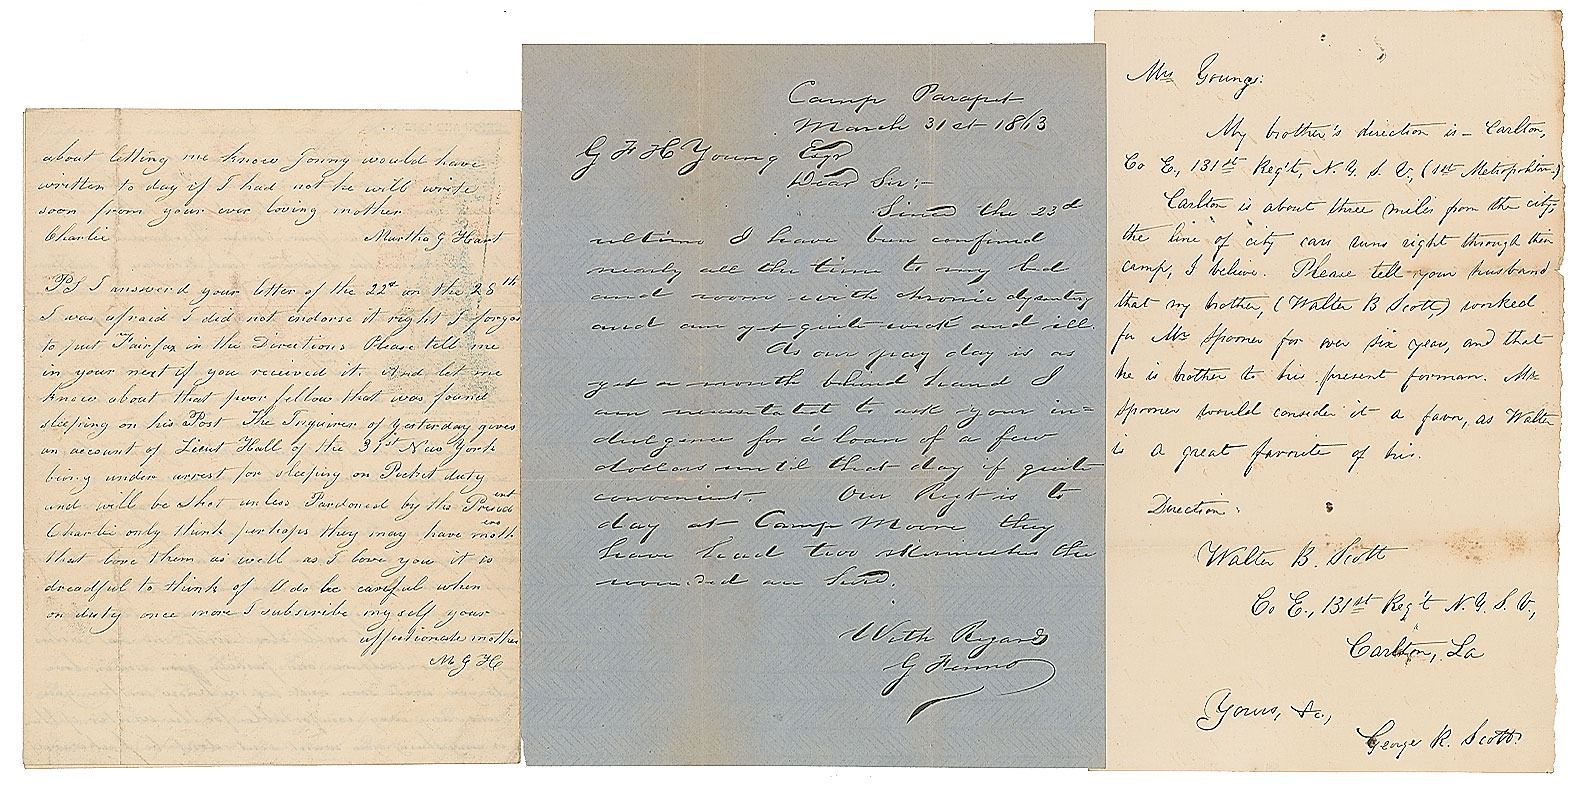 about letting me know Jonny would have
written to day if I had not he will write
soon from your ever loving mother
Charlie Martha G Hart
PS I answerd your letter of the 22d on the 28th
I was afraid I did not endorse it right I forgot
to put Fairfax in the Directions Please tell me
in your next if you received it. And let me
know about that poor fellow that was found
sleeping on his Post The Inquirer of yesterday gives
an account of Lieut Hall of the 31st New York
being under arrest for sleeping on Picket duty
and will be shot unless Pardoned by the President
Charlie only think perhaps they may have mothers
that love them as well as I love you it is
dreadful to think of O do be careful when
on duty once more I subscribe myself your
affectionate mother
M G H
Camp Parapet
March 31st 1863
G F H Young Esqr
Dear Sir:-
Since the 23d
ultimo I have been confined
nearly all the time to my bed
and room with chronic dysentry
and am yet quite sick and ill.
As our pay day is as
yet a month behind hand I
am necessitated to ask your in=
dulgence for a loan of a few
dollars until that day if quite
convenient. Our Regt is to
day at Camp Moore they
have had two skirmishes the
wounded are here.
With Regards
G Fenno
Mrs Young:
My brother's direction is - Carlton,
Co E., 131st Reg't, N. Y. S. V., (1st Metropolitan.)
Carlton is about three miles from the city,
the line of city cars runs right through their
camp, I believe. Please tell your husband
that my brother, (Walter B Scott,) worked
for Mr Spooner for over six year, and that
he is brother to his present forman. Mr
Spooner would consider it a favor, as Walter
is a great favorite of his.
Direction:
Walter B. Scott
Co E., 131st Reg't N. Y. S. V.,
Carlton, La
Yours, &c.,
George R. Scott.